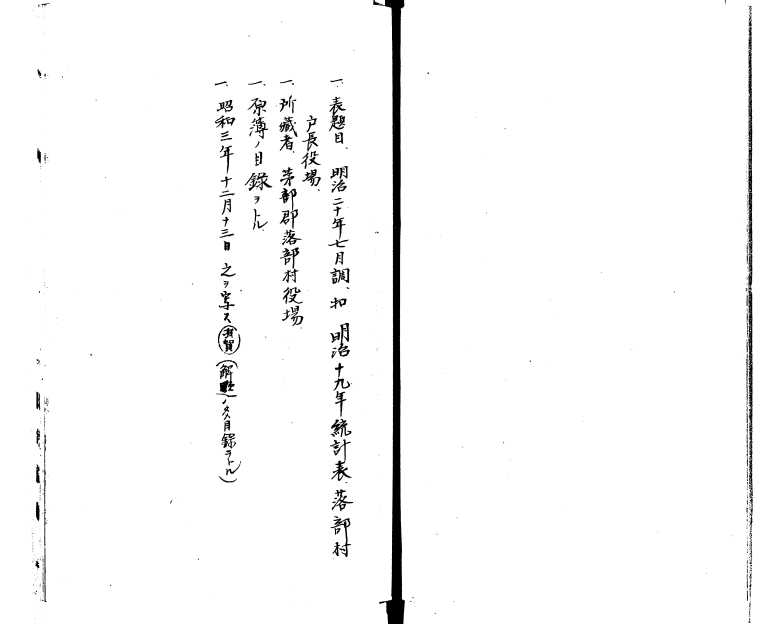 一、表題目、明治二十年七月調、扣 明治十九年統計表、落部村
戸長役場、
一、所蔵者、茅部郡落部村役場、
一、原簿ノ目録ヲトル
一、昭和三年十二月十三日 之ヲ写ス 須賀 (解 ノ 目録ヲトル)